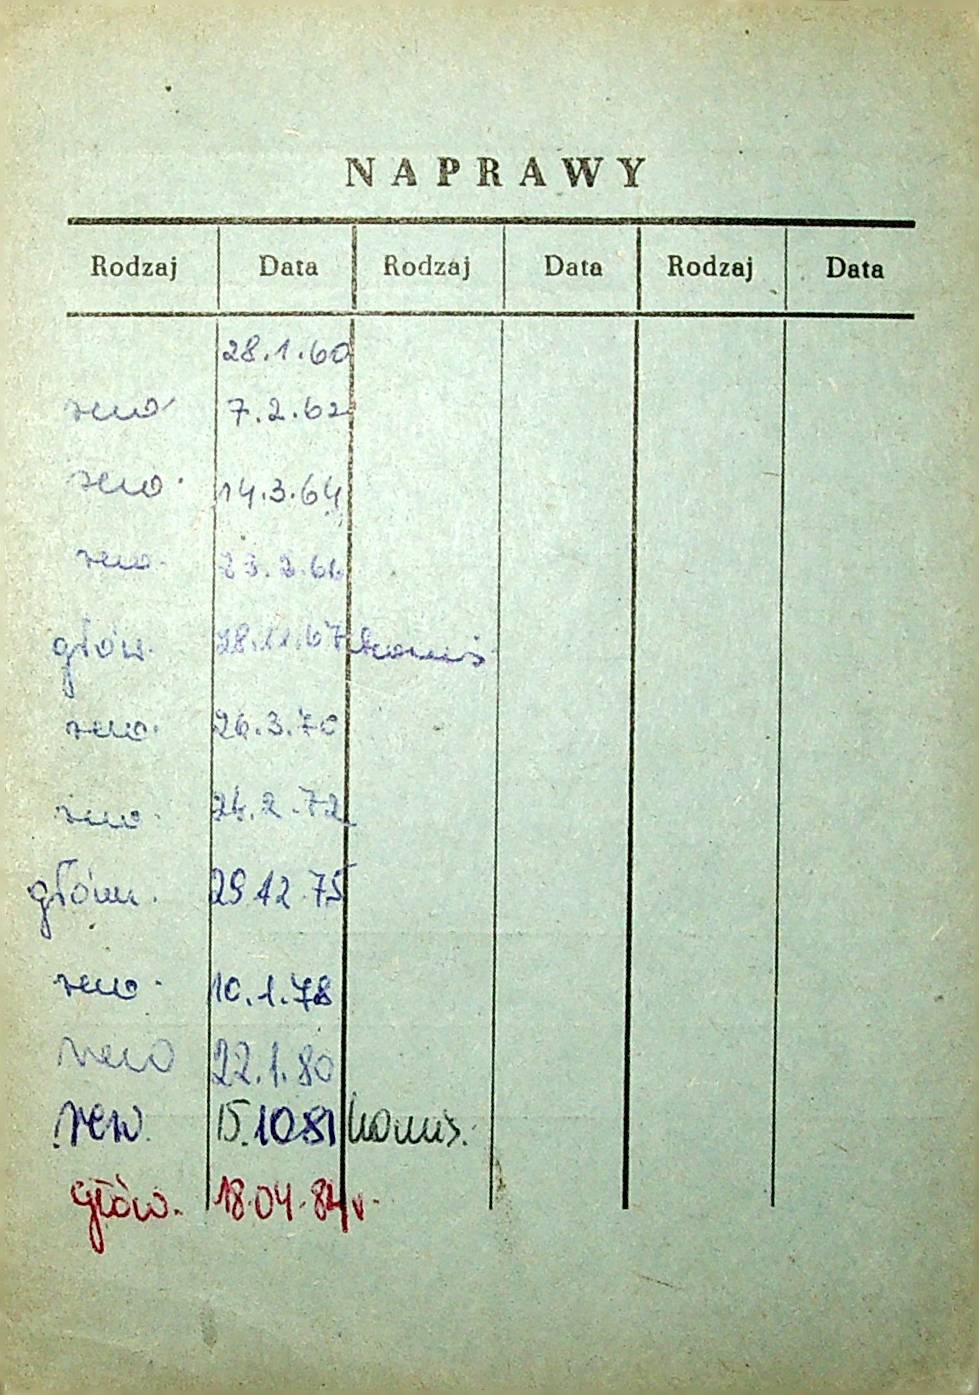 NAPRAWY
Rodzaj Data Rodzaj Data Rodzaj Data
28.1.60
rew 7.2.62
rew. 14.3.64
rew. 23.2.66
głów. 28.11.67 komis
rew. 26.3.70
rew. 24.2.72
główn. 29.12.75
rew. 10.1.78
rew 22.1.80
rew. 15.10.81 komis.
głów. 18.04.84 r.